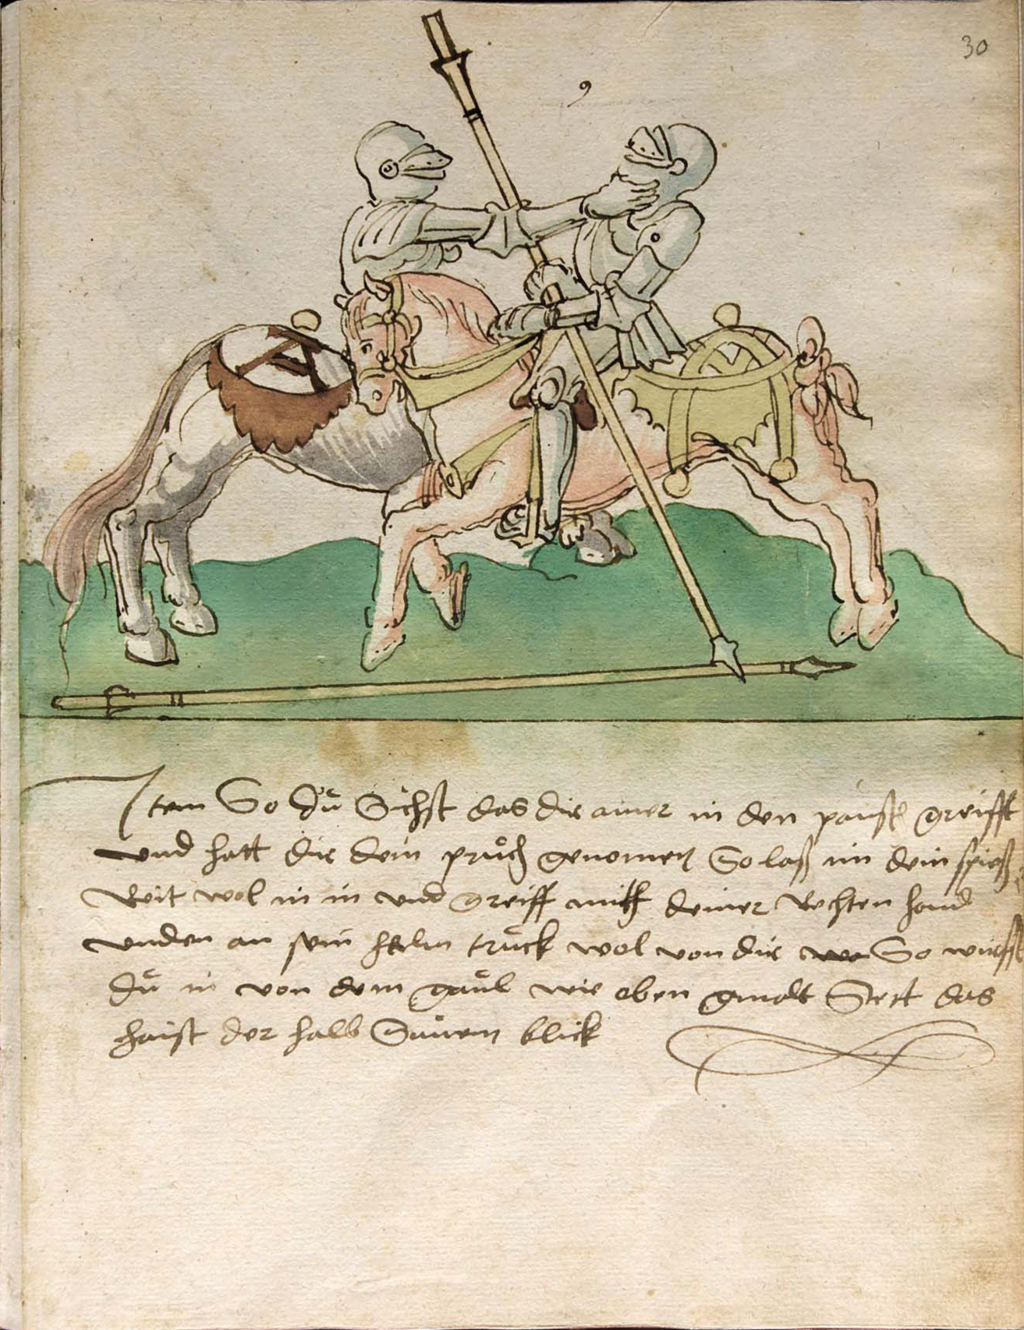 30
9
Item So dů Sichst das dir ainer in den paust greifft
und hatt dir dein pruch genomen So laß im dein spieß
Reit wol in in und greiff mitt deiner Rechten hand
unden an sein helm truck wol von dir So wirfst
dů in von dem gaůl wie oben gmalt Stett das
haist der halb Sauren blick